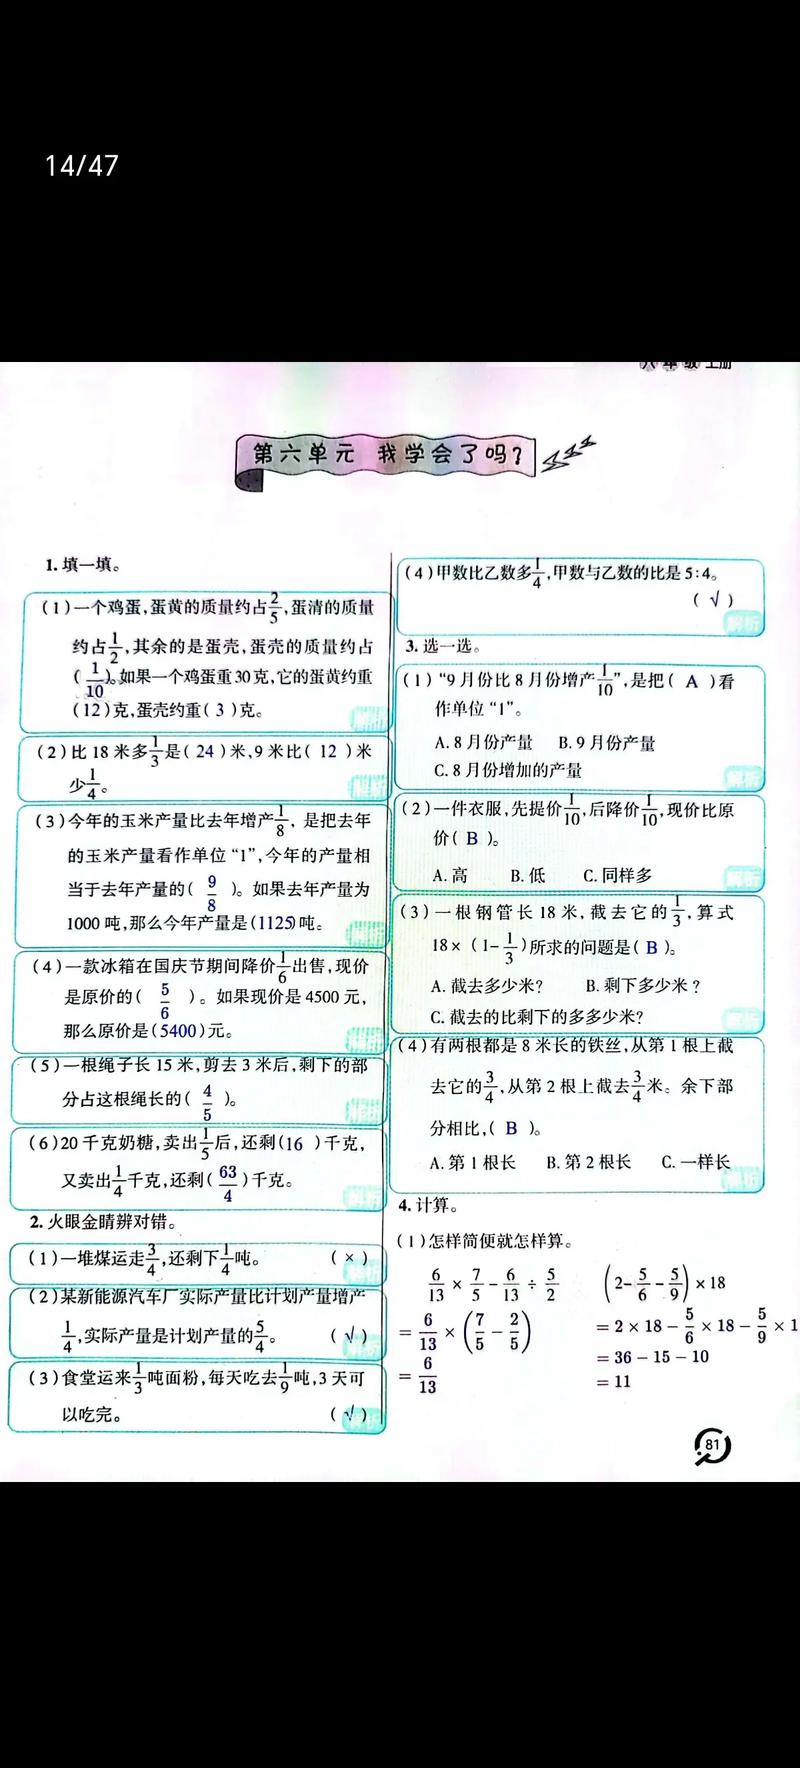 14/47
六年级 上册
第六单元 我学会了吗?
1. 填一填。
(1)一个鸡蛋,蛋黄的质量约占2/5,蛋清的质量
约占1/2,其余的是蛋壳,蛋壳的质量约占
(1/10)。如果一个鸡蛋重30克,它的蛋黄约重
(12)克,蛋壳约重(3)克。
解析
(2)比18米多1/3是(24)米,9米比(12)米
少1/4。
解析
(3)今年的玉米产量比去年增产1/8,是把去年
的玉米产量看作单位“1”,今年的产量相
当于去年产量的(9/8)。如果去年产量为
1000吨,那么今年产量是(1125)吨。
解析
(4)一款冰箱在国庆节期间降价1/6出售,现价
是原价的(5/6)。如果现价是4500元,
那么原价是(5400)元。
解析
(5)一根绳子长15米,剪去3米后,剩下的部
分占这根绳长的(4/5)。
解析
(6)20千克奶糖,卖出1/5后,还剩(16)千克,
又卖出1/4千克,还剩(63/4)千克。
解析
2. 火眼金睛辨对错。
(1)一堆煤运走3/4,还剩下1/4吨。 (×)
解析
(2)某新能源汽车厂实际产量比计划产量增产
1/4,实际产量是计划产量的5/4。 (√)
解析
(3)食堂运来1/3吨面粉,每天吃去1/9吨,3天可
以吃完。 (√)
解析
(4)甲数比乙数多1/4,甲数与乙数的比是5:4。
(√)
解析
3. 选一选。
(1)“9月份比8月份增产1/10”,是把(A)看
作单位“1”。
A. 8月份产量 B. 9月份产量
C. 8月份增加的产量
解析
(2)一件衣服,先提价1/10,后降价1/10,现价比原
价(B)。
A. 高 B. 低 C. 同样多
解析
(3)一根钢管长18米,截去它的1/3,算式
18×(1-1/3)所求的问题是(B)。
A. 截去多少米? B. 剩下多少米?
C. 截去的比剩下的多多少米?
解析
(4)有两根都是8米长的铁丝,从第1根上截
去它的3/4,从第2根上截去3/4米。余下部
分相比,(B)。
A. 第1根长 B. 第2根长 C. 一样长
解析
4. 计算。
(1)怎样简便就怎样算。
6/13×7/5-6/13÷5/2 (2-5/6-5/9)×18
=6/13×(7/5-2/5) =2×18-5/6×18-5/9×1
=6/13 =36-15-10
=11
81